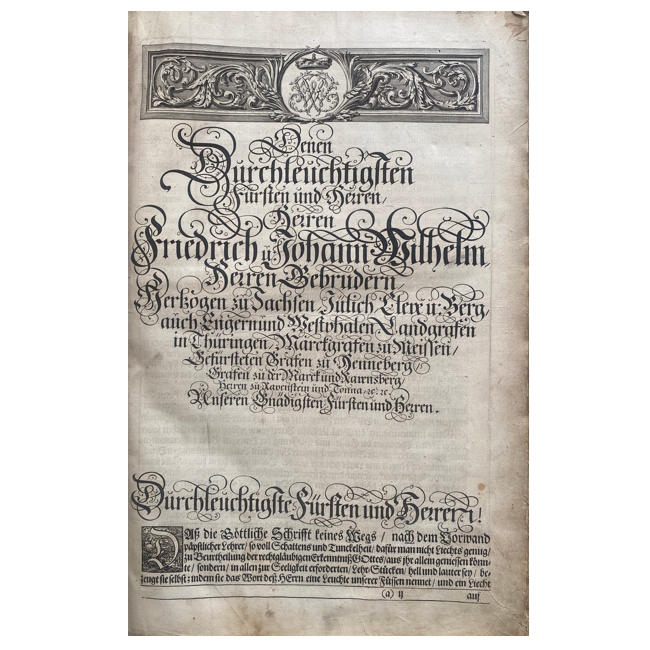 Denen
Durchleuchtigsten
Fürsten und Herren/
Herren
Friedrich u Johann Wilhelm,
Herren Gebrüdern
Hertzogen zu Sachsen, Jülich, Cleve u: Berg/
auch Engern und Westphalen Landgrafen
in Thüringen/ Marckgrafen zu Meissen/
Gefürsteten Grafen zu Henneberg/
Grafen zu der Marck und Ravensberg/
Herren zu Ravenstein und Tonna/ ꝛc: ꝛc.
Unseren Gnädigsten Fürsten und Herren.
Durchleuchtigste Fürsten und Herren!
DAß die Göttliche Schrifft keines Wegs / nach dem Vorwand
päpstlicher Lehrer/ so voll Schattens und Tunckelheit/ dafür man nicht Liechts genug/
zu Beurtheilung der rechtgläubigen Erkenntnuß GOttes/ aus ihr allein geniessen könn-
te/ sondern/ in allen zur Seeligkeit erforderten/ Lehr-Stücken/ hell und lauter sey/ be-
zeugt sie selbst: indem sie das Wort deß HErrn eine Leuchte unserer Füssen nennet/ und ein Liecht
(a) ij auf